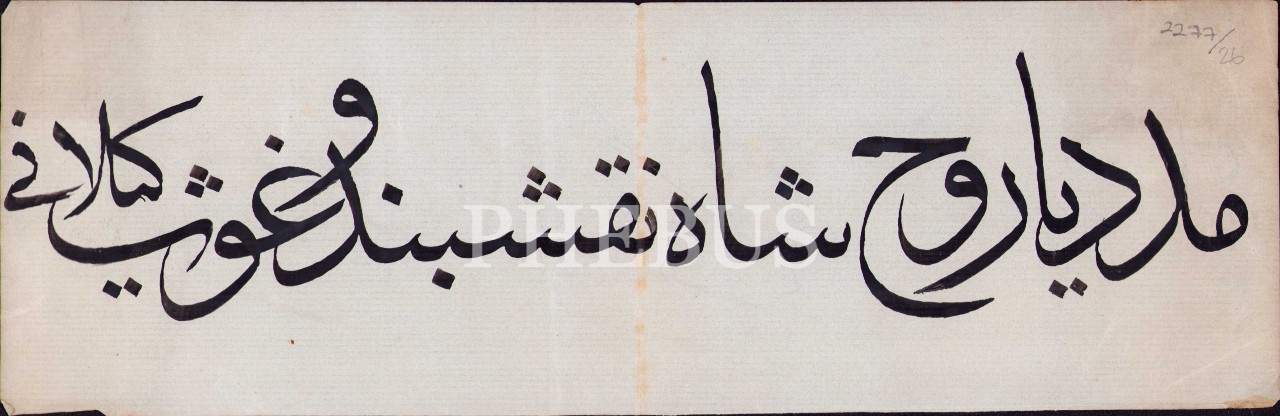 مدد یا روح شاه نقشبند و غوث کیلانی
2277/26
PHEBUS